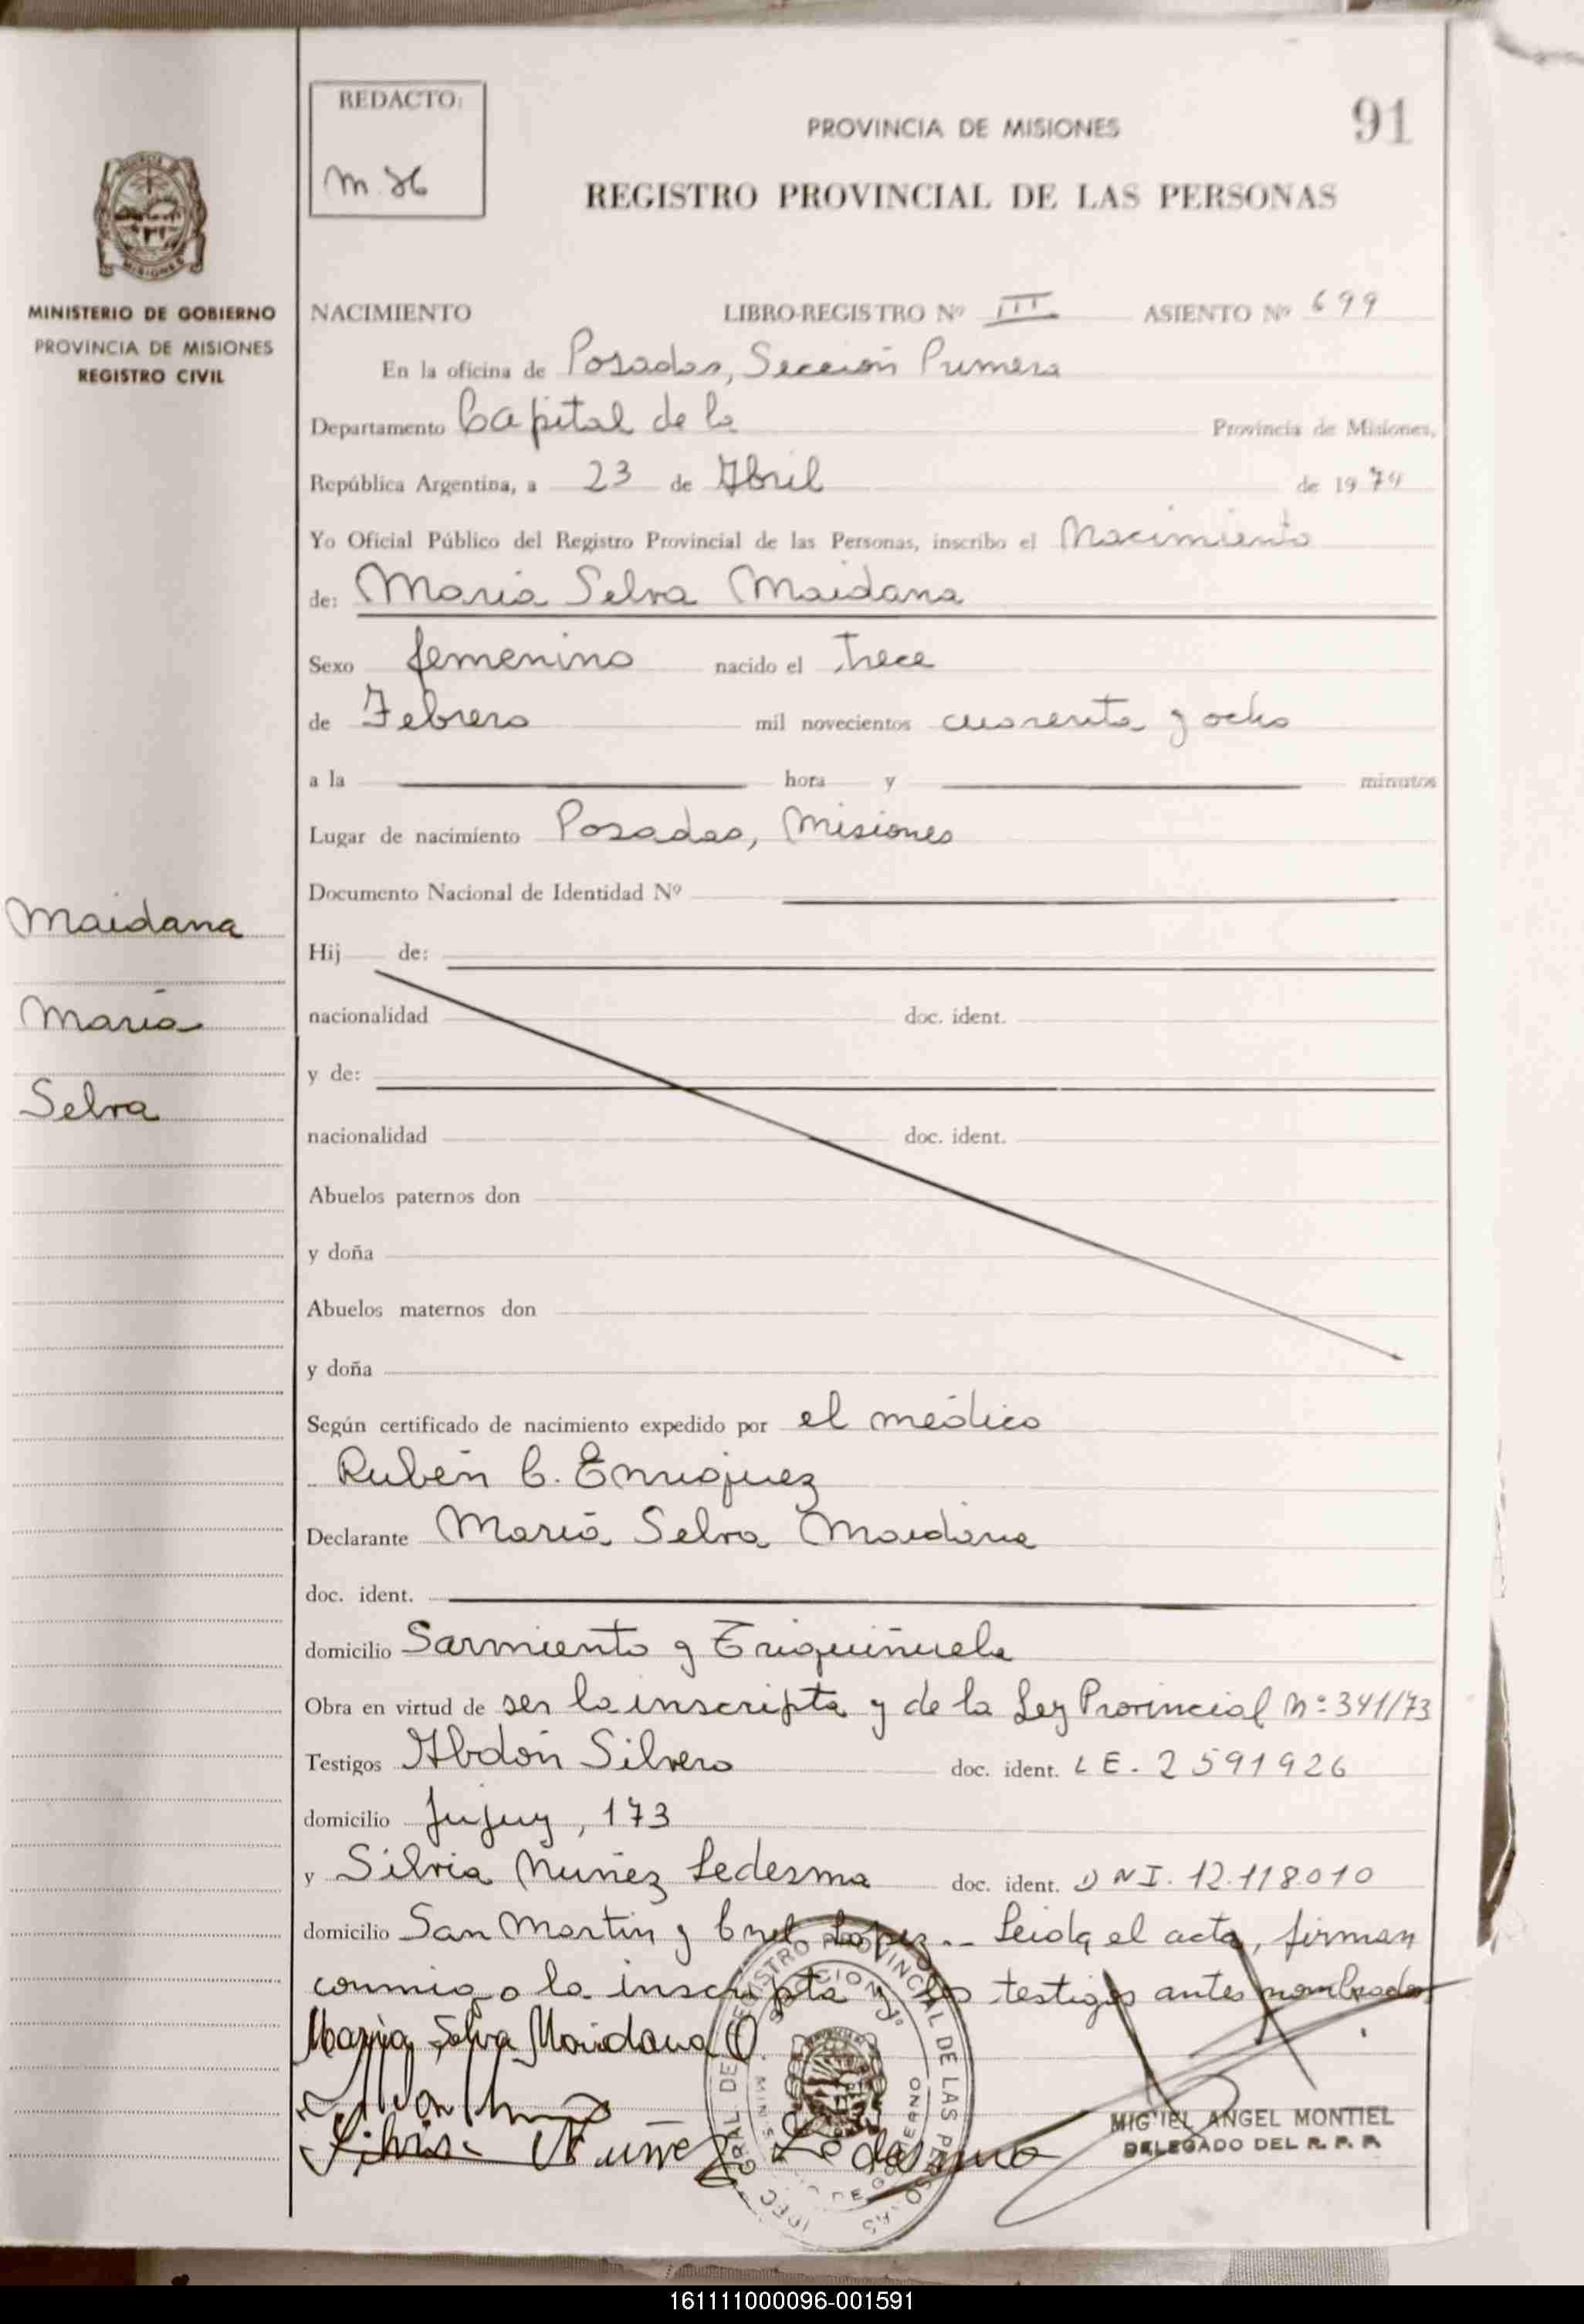 REDACTO:
91
PROVINCIA DE MISIONES
REGISTRO PROVINCIAL DE LAS PERSONAS
MINISTERIO DE GOBIERNO
PROVINCIA DE MISIONES
REGISTRO CIVIL
NACIMIENTO LIBRO-REGISTRO Nº III ASIENTO Nº 699
En la oficina de Posadas, Sección Primera
Departamento Capital de la Provincia de Misiones,
República Argentina, a 23 de Abril de 1974
Yo Oficial Público del Registro Provincial de las Personas, inscribo el Nacimiento
de: María Selva Maidana
Sexo femenino nacido el trece
de Febrero mil novecientos cuarenta y ocho
a la hora y minutos
Lugar de nacimiento Posadas, Misiones
Documento Nacional de Identidad Nº
Maidana
María
Selva
Hij de:
nacionalidad doc. ident.
y de:
nacionalidad doc. ident.
Abuelos paternos don
y doña
Abuelos maternos don
y doña
Según certificado de nacimiento expedido por el médico
Rubén C. Enriquez
Declarante María Selva Maidana
doc. ident.
domicilio Sarmiento y
Obra en virtud de ser la inscripta y de la Ley Provincial Nº 341/73
Testigos Abdón Silvero doc. ident. L E. 2591926
domicilio Jujuy, 173
y Silvia Nuñez Ledesma doc. ident. DNI. 12.118.010
domicilio San Martín y Cnel. Lopez.- Leida el acta, firman
conmigo la inscripta y los testigos antes nombrados
Maria Selva Maidana O.
Silvia Nuñez Ledesma
MIGUEL ANGEL MONTIEL
DELEGADO DEL R. P. P.
161111000096-001591